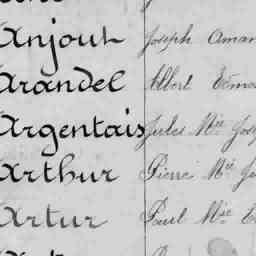 Anjout Joseph Aman
Arandel Albert Edmo
Argentais Jules Mie Jos
Arthur Pierre Mie Ju
Artur Paul Mie E